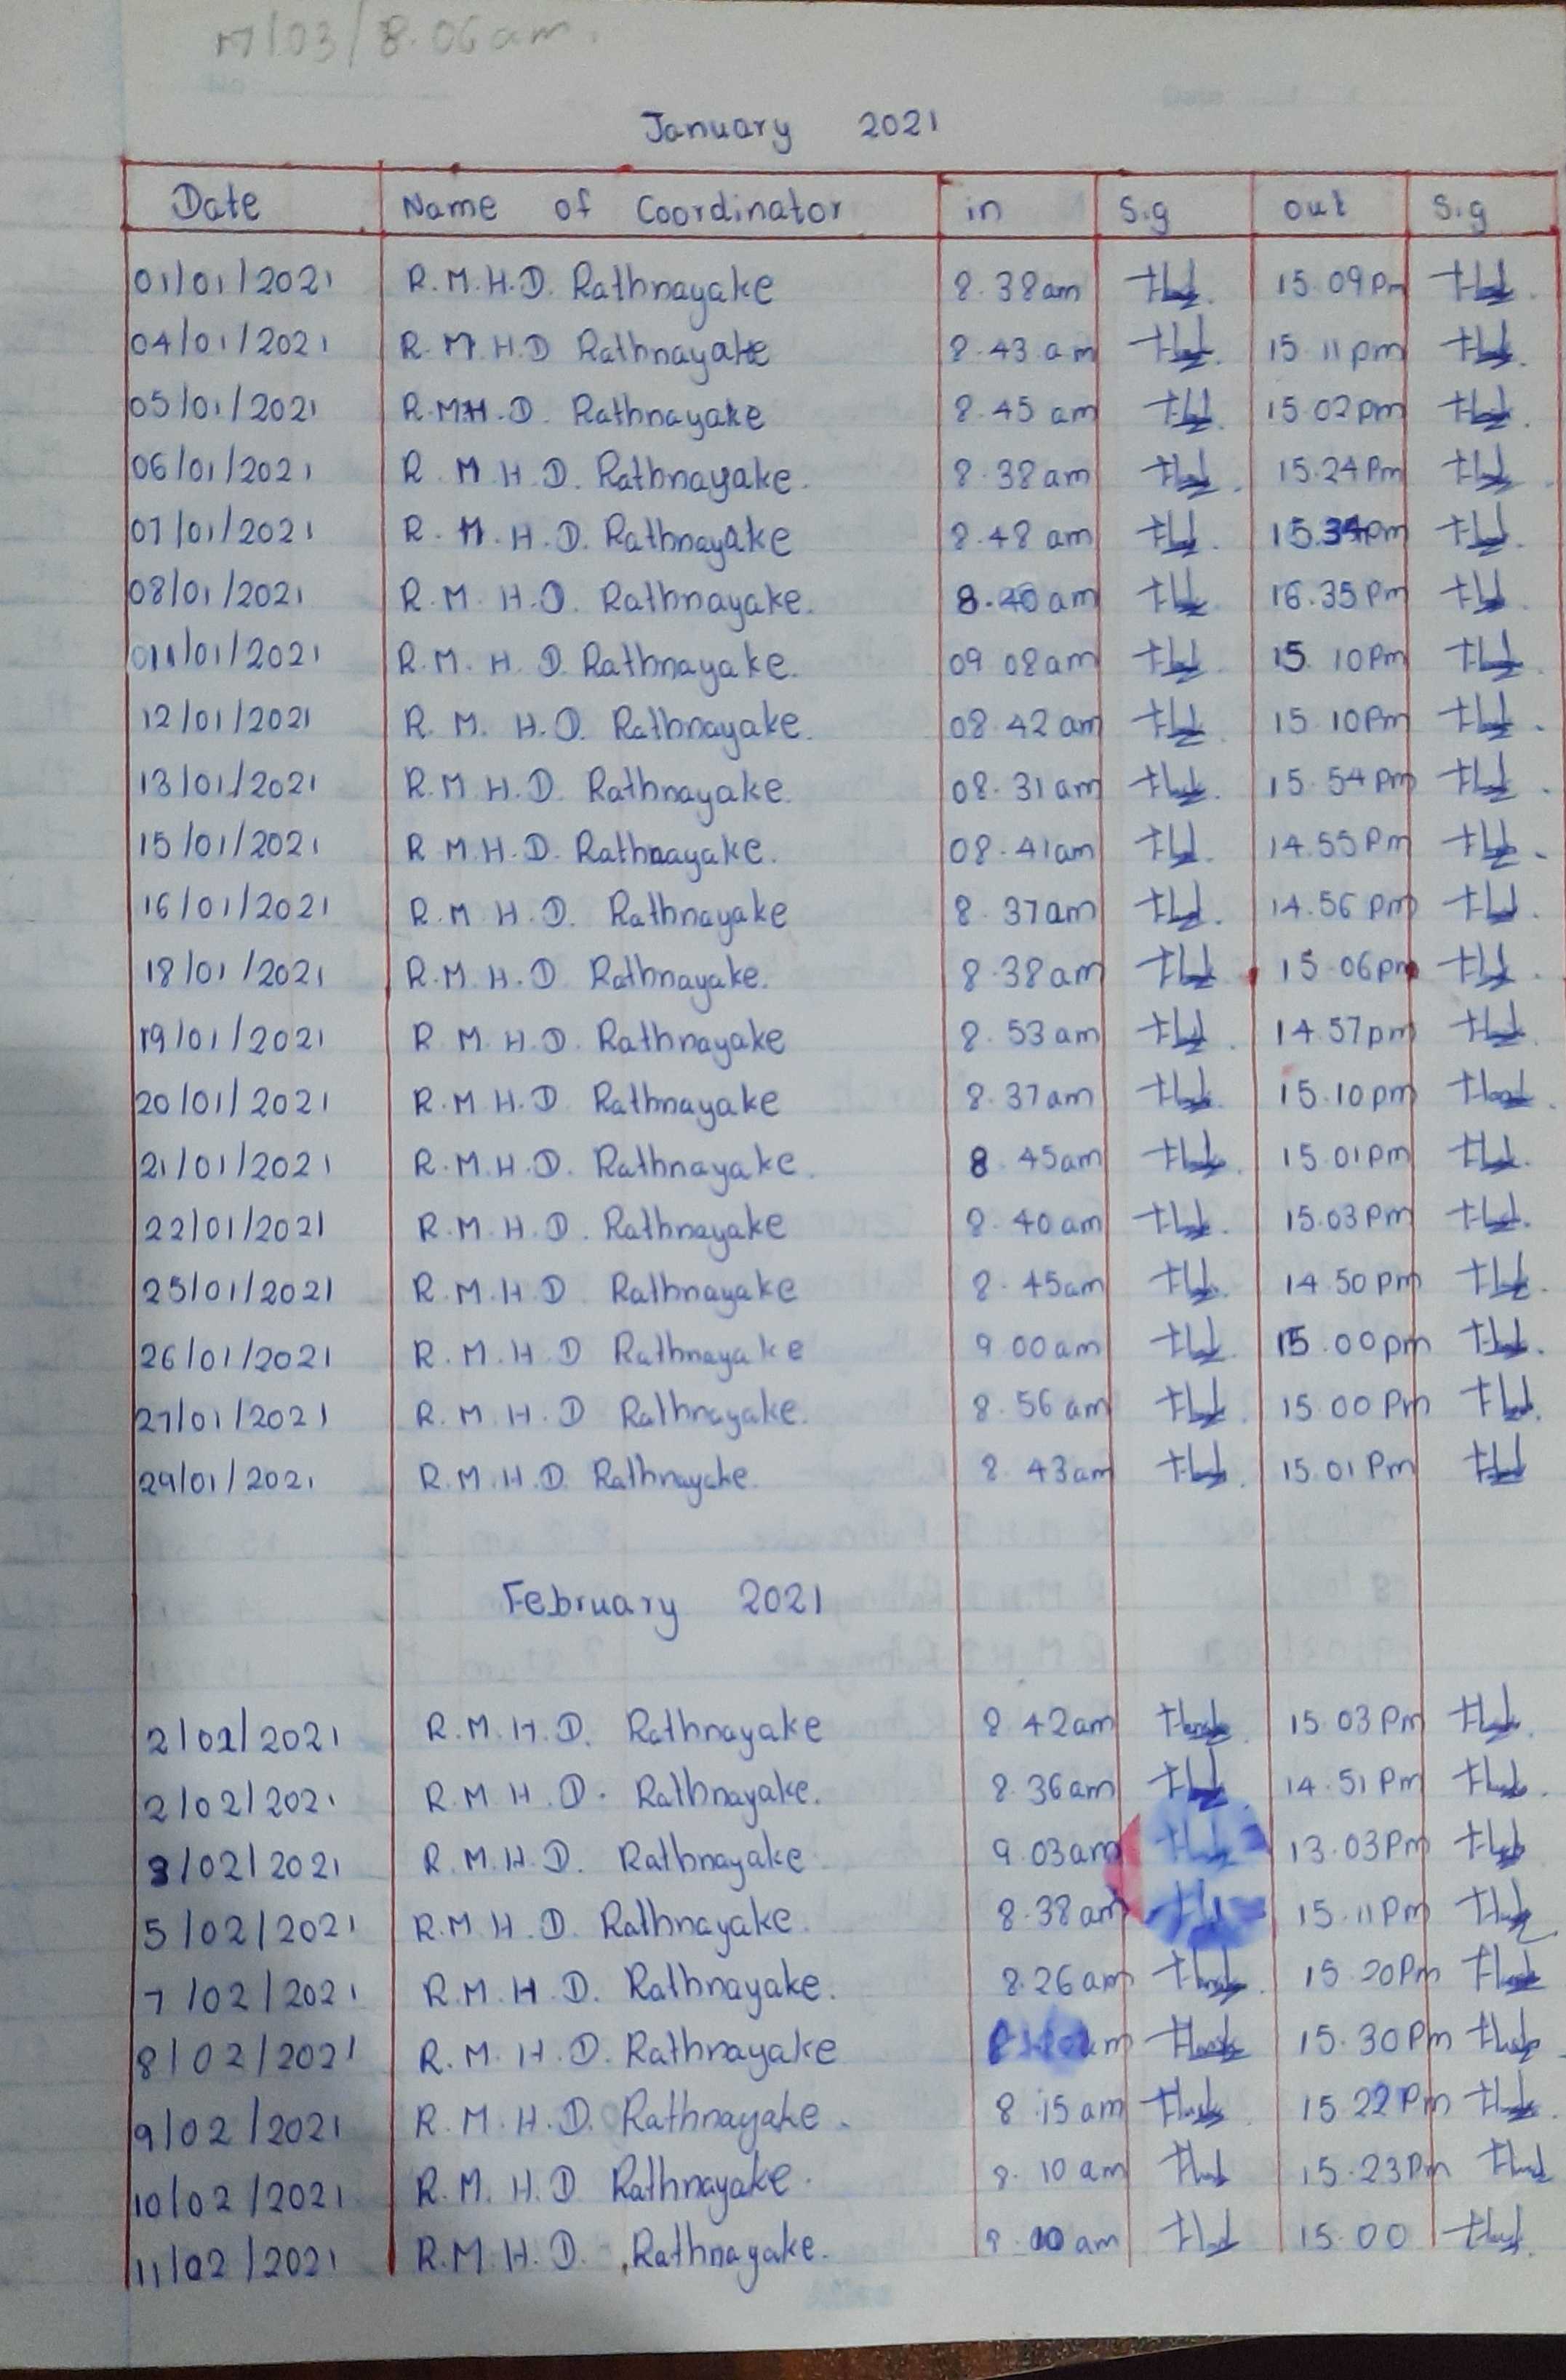 17/03/8.06am.
January 2021
Date Name of Coordinator in Sig out Sig
01/01/2021 R.M.H.D. Rathnayake 8.38am 15.09pm
04/01/2021 R.M.H.D Rathnayake 8.43 am 15.11pm
05/01/2021 R.M.H.D. Rathnayake 8.45 am 15.02pm
06/01/2021 R.M.H.D. Rathnayake. 8.38am 15.24Pm
07/01/2021 R.M.H.D. Rathnayake 8.48 am 15.34pm
08/01/2021 R.M.H.D. Rathnayake. 8.40am 16.35Pm
011/01/2021 R.M.H.D. Rathnayake. 09 08am 15 10Pm
12/01/2021 R.M.H.D. Rathnayake. 08.42 am 15 10Pm
13/01/2021 R.M.H.D. Rathnayake. 08.31am 15.54pm
15/01/2021 R.M.H.D. Rathnayake. 08.41am 14.55Pm
16/01/2021 R.M.H.D. Rathnayake 8.37am 14.56 pm
18/01/2021 R.M.H.D Rathnayake. 8.38am 15.06pm
19/01/2021 R.M.H.D. Rathnayake 8.53am 14.57pm
20/01/2021 R.M.H.D Rathnayake 8.37am 15.10pm
21/01/2021 R.M.H.D. Rathnayake. 8.45am 15.01pm
22/01/2021 R.M.H.D. Rathnayake 8.40am 15.03Pm
25/01/2021 R.M.H.D Rathnayake 8.45am 14.50pm
26/01/2021 R.M.H.D Rathnayake 9 00am 15.00pm
27/01/2021 R.M.H.D Rathnayake. 8.56 am 15.00 Pm
29/01/2021 R.M.H.D. Rathnayake. 8.43am 15.01 Pm
February 2021
2/02/2021 R.M.H.D. Rathnayake 8.42am 15.03 Pm
2/02/2021 R.M.H.D. Rathnayake. 8.36am 14.51 Pm
3/02/2021 R.M.H.D. Rathnayake 9.03am 13.03Pm
5/02/2021 R.M.H.D. Rathnayake. 8.38am 15.11Pm
7/02/2021 R.M.H.D. Rathnayake. 8.26am 15.20Pm
8/02/2021 R.M.H.D. Rathnayake 15.30Pm
9/02/2021 R.M.H.D. Rathnayake. 8.15am 15 22Pm
10/02/2021 R.M.H.D Rathnayake. 8.10am 15.23Pm
11/02/2021 R.M.H.D. Rathnayake. am 15.00